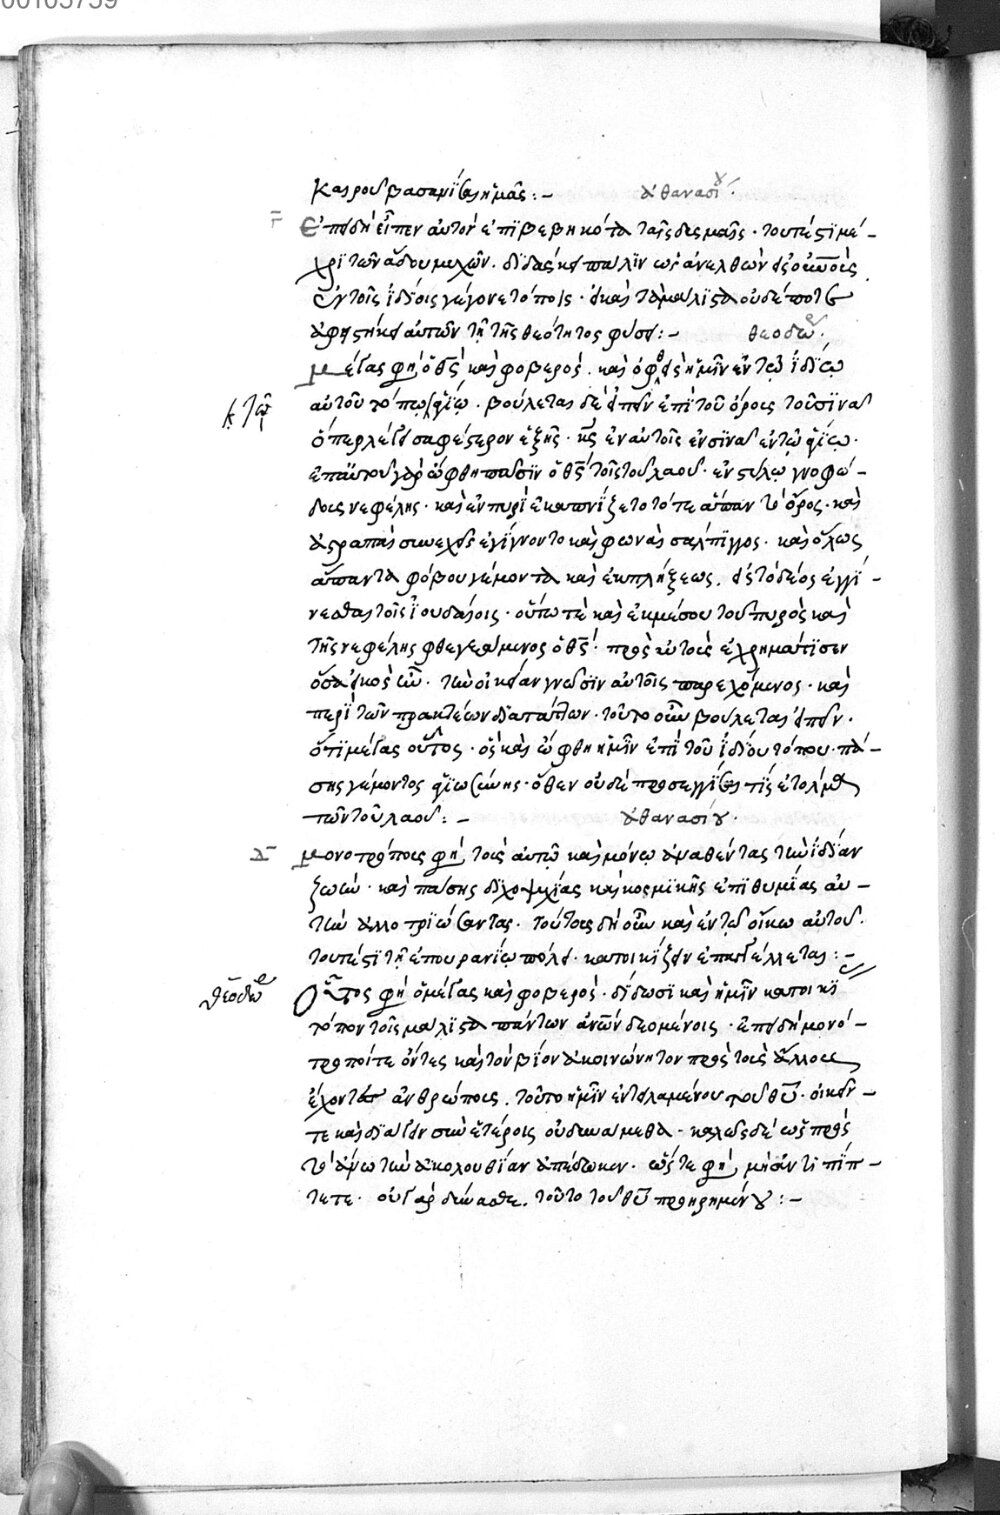 00105759
καιροῦ βασανίσει ἡμᾶς :– ἀθανασίου.
Ἐπειδὴ εἶπεν αὐτὸν ἐπιβεβηκότα ταῖς δυσμαῖς · τουτέστι μέ–
χρι τῶν ἅδου μυχῶν . διδάσκει πάλιν ὡς ἀνελθὼν εἰς οὐνοὺς
ἐν τοῖς ἰδίοις γέγονε τόποις · εἰ καὶ τὰ μάλιστα οὐδέποτε
ἀφεστήκει αὐτῶν τῇ τῆς θεότητος φύσει :– θεοδώ.
μέγας φη, ὁ θς καὶ φοβερός . καὶ ὀφθεὶς ἡμῖν ἐν τῷ ἰδίῳ
αὐτοῦ τόπῳ ἁγίῳ . βούλεται δὲ εἰπεῖν ἐπὶ τοῦ ὄρους τοῦ σιναῖ
ὅπερ λέγει σαφέστερον ἑξῆς · κς ἐν αὐτοῖς ἐν σιναῖ ἐν τῷ ἁγίῳ .
ἐπ' αὐτοῦ γὰρ ὤφθη πᾶσιν ὁ θς τοῖς τοῦ λαοῦ · ἐν στύλῳ γνοφώ–
δους νεφέλης · καὶ ἐν πυρὶ ἐκαπνίζετο τότε ἅπαν τὸ ὄρος · καὶ
ἀστραπαὶ συνεχεῖς ἐγίγνοντο καὶ φωναὶ σάλπιγγος . καὶ ὅλως
ἅπαντα φόβου γέμοντα καὶ ἐκπλήξεως . εἰς τὸ δέος ἐγγί–
νεσθαι τοῖς ἰουδαίοις · οὕτω τὲ καὶ ἐκ μέσου τοῦ πυρὸς καὶ
τῆς νεφέλης φθεγγόμενος ὁ θς · πρὸς αὐτοὺς ἐχρημάτισεν
ὅσα εἰκὸς ὧν . τὴν οἰκείαν γνῶσιν αὐτοῖς παρεχόμενος · καὶ
περὶ τῶν πρακτέων διατάττων . τοῦτο οὖν βούλεται εἰπεῖν .
ὅτι μέγας οὗτος . ὃς καὶ ὤφθη ἡμῖν ἐπὶ τοῦ ἰδίου τόπου · πά–
σης γέμοντος ἁγιωσύνης · ὅθεν οὐδὲ προσεγγίσαι τίς ἐτόλμα
τῶν τοῦ λαοῦ : – ἀθανασίου .
μονοτρόπους φη, τοὺς αὐτῷ καὶ μόνῳ ἀναθέντας τὴν ἰδίαν
ζωὴν . καὶ πάσης διχοψυχίας καὶ κοσμικῆς ἐπιθυμίας αὐ–
τὴν ἀλλοτριώσαντας . τούτους δὴ οὖν καὶ ἐν τῷ οἴκῳ αὐτοῦ .
τουτέστι τῇ ἐπουρανίῳ πόλει . κατοικίζειν ἐπαγγέλλεται :–
θεοδώ
Οὗτος φη ὁ μέγας καὶ φοβερὸς . δίδωσι καὶ ἡμῖν κατοικεῖ
τόπον τοῖς μάλιστα πάντων ἀνῶν δεομένοις . ἐπειδὴ μονό–
τροποί τε ὄντες καὶ τὸν βίον ἀκοινώνητον πρὸς τοὺς ἄλλους
ἔχοντες ἀνθρώπους . τοῦτο ἡμῖν ἐντειλαμένου τοῦ θυ . οἰκεῖν –
τε καὶ διάγειν σὺν ἑτέροις οὐ δυνάμεθα . καλῶς δὲ ὡς πρὸς
τὸ ἄνω τὴν ἀκολουθίαν ἀπέδωκεν . ὥστε φη, μὴ
τετε . οὐ γὰρ δύνασθε . τοῦτο τοῦ θυ προηρημένου : –